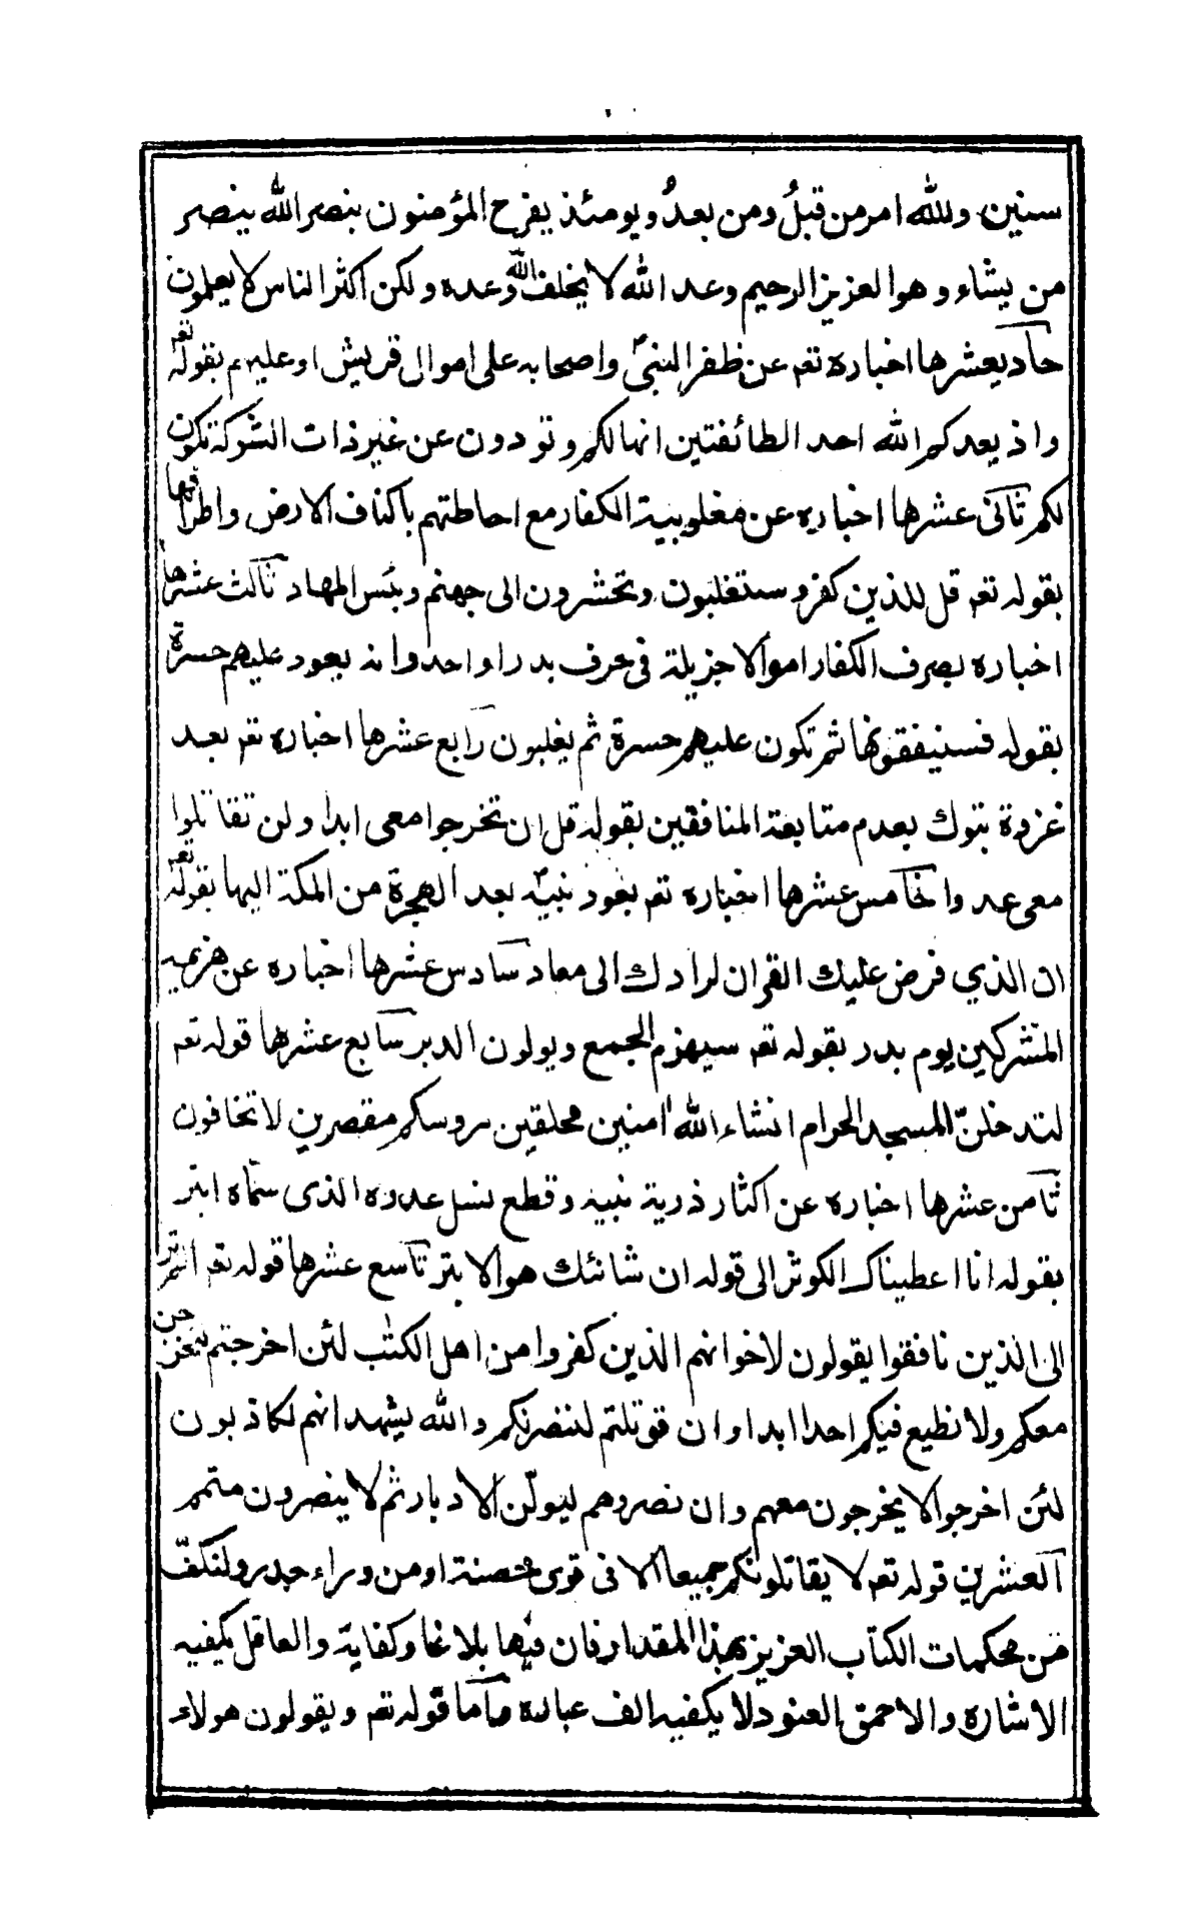 سنين ولله امر من قبلُ ومن بعدُ ويومئذ يفرح المؤمنون بنصر الله ينصر
من يشاء وهو العزيز الرحيم وعد الله لا يخلف الله وعده ولكن اكثر الناس لا يعلمون
حآديعشرها اخباره تعم عن ظفر النبىؐ واصحابه على اموال قريش اوعليهم بقوله تعم
واذ يعدكم الله احد الطائفتين انها لكم وتودون عن غير ذات الشوكة تكون
لكم ثآنى عشرها اخباره عن مغلوبية الكفار مع احاطتهم باكناف الارض واطرافها
بقوله تعم قل للذين كفرو ستغلبون وتحشرون الى جهنم وبئس المهاد ثآلث عشرها
اخباره بصرف الكفار اموالا جزيلة فى حرف بدر او احد وانه يعود عليهم حسرة
بقوله فسنيفقونها ثم تكون عليهم حسرة ثم يغلبون رآبع عشرها اخباره تعم بعد
غزوة تبوك بعدم متابعة المنافقين بقوله قل ان تخرجوا معى ابدا ولن تقاتلوا
معى عد واخآمس عشرها اخباره تعم بعود نبيّه بعد الهجرة من المكة اليها بقوله تعم
ان الذي فرض عليك القران لرادك الى معاد سآدس عشرها اخباره عن هزيمة
المشركين يوم بدر بقوله تعم سيهزم الجمع ويولون الدبر سآبع عشرها قوله تعم
لتدخلنّ المسجد الحرام انشاء الله امنين محلقين روسكم مقصرين لا تخافون
ثآمن عشرها اخباره عن اكثار ذرية نبيه وقطع نسل عدوه الذى سمّاه ابتر
بقوله انا اعطيناك الكوثر الى قوله ان شانئك هو الابتر تآسع عشرها قوله تعم المتر
الى الذين نافقوا يقولون لاخوانهم الذين كفروا من اهل الكتب لئن اخرجتم لنخرجن
معكم ولا نطيع فيكم احدا ابدا وان قوتلتم لننصرنكم والله يشهد انهم لكاذبون
لئن اخرجوا لا يخرجون معهم وان نصروهم ليولّن الادبار ثم لا ينصرون متمم
آلعشرين قوله تعم لا يقاتلونكم جميعا الا فى قرى محصنة او من وراء جدر ولنكفّ
من محكمات الكتاب العزيز بهذا المقدار فان فيها بلاغا وكفاية والعاقل يكفيه
الاشاره والاحمق العنود لا يكفيه الف عباره وآما قوله تعم ويقولون هولاء